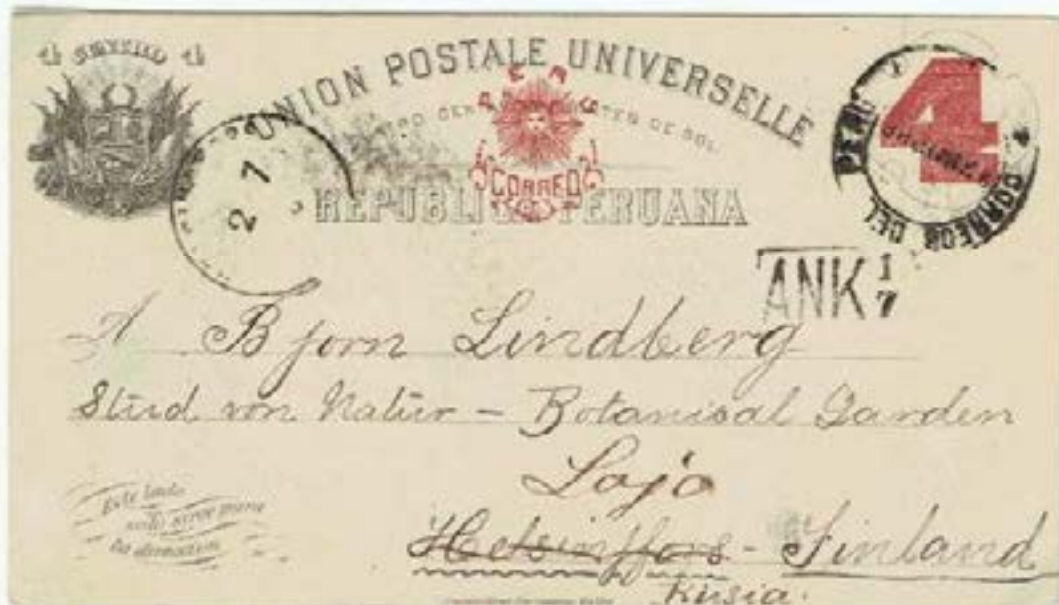 4 4
UNION POSTALE UNIVERSELLE
4
CORREOS
REPUBLICA PERUANA
CORREOS DEL PERU
2 7
ANK 1/7
A Bjorn Lindberg
Stud von Natur - Botanisal Garden
Lojo
Helsingfors - Finland
Rusia.
Este lado
solo sirve para
la direccion